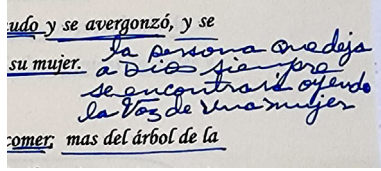 udo y se avergonzó, y se
la persona que deja
su mujer. a Dios siempre
se encontrará oyendo
la Voz de una mujer
comer; mas del árbol de la